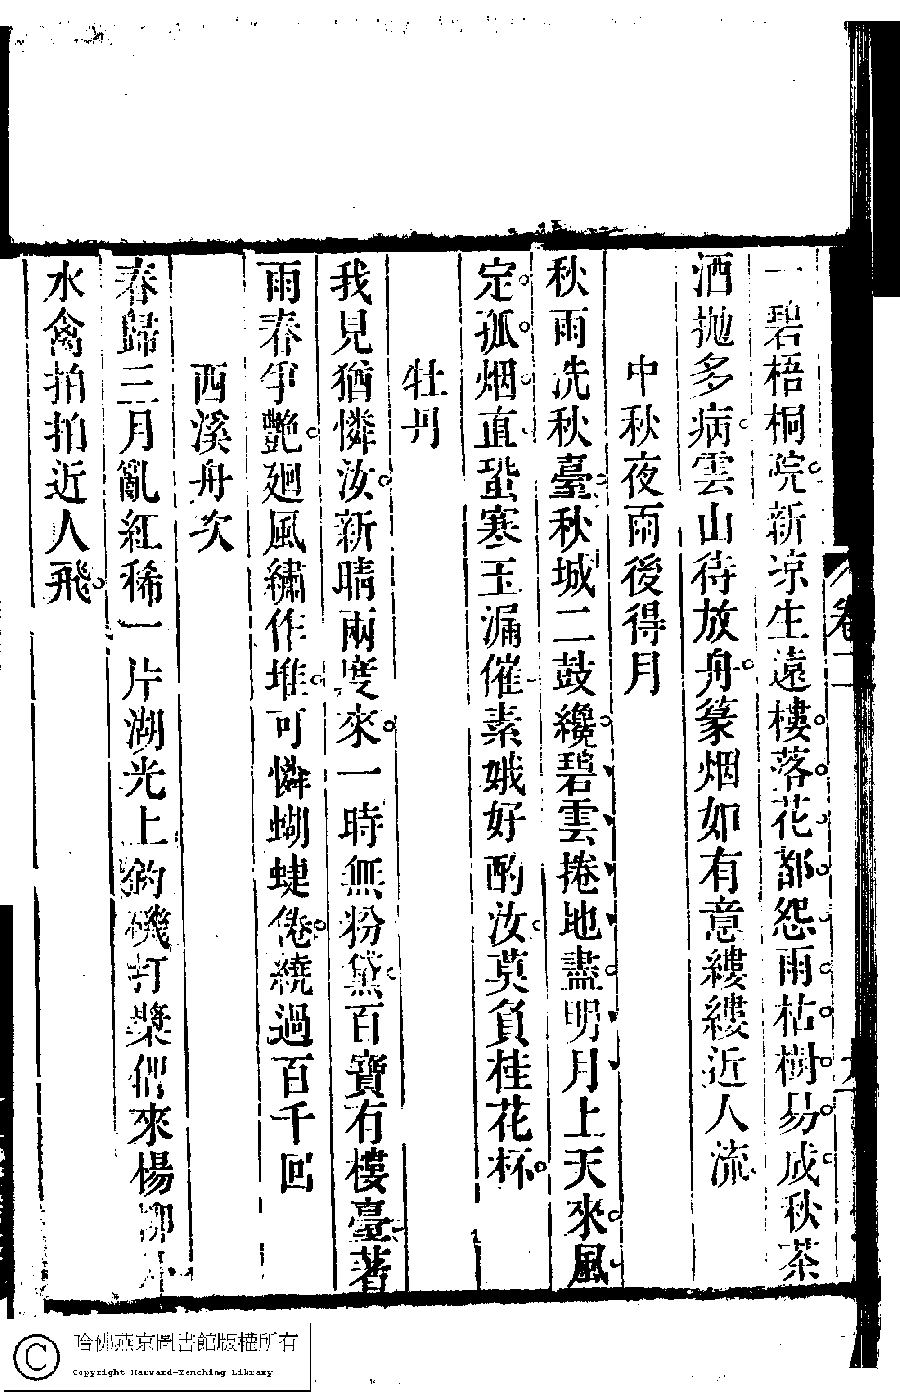 一碧梧桐院新凉生遠樓落花都怨雨枯樹易成秋茶
酒抛多病雲山待放舟篆烟如有意縷縷近人流
中秋夜雨後得月
秋雨洗秋臺秋城二鼓纔碧雲捲地盡明月上天來風
定孤烟直蛩寒玉漏催素娥好酌汝莫負桂花杯
牡丹
我見猶憐汝新晴兩度來一時無粉黛百寶有樓臺著
雨春爭艷廻風繡作堆可憐蝴蝶倦繞過百千回
西溪舟次
春歸三月亂紅稀一片湖光上釣磯打槳偕來楊柳
水禽拍拍近人飛
卷二
哈佛燕京圖書館版權所有
Copyright Harvard-Yenching Library